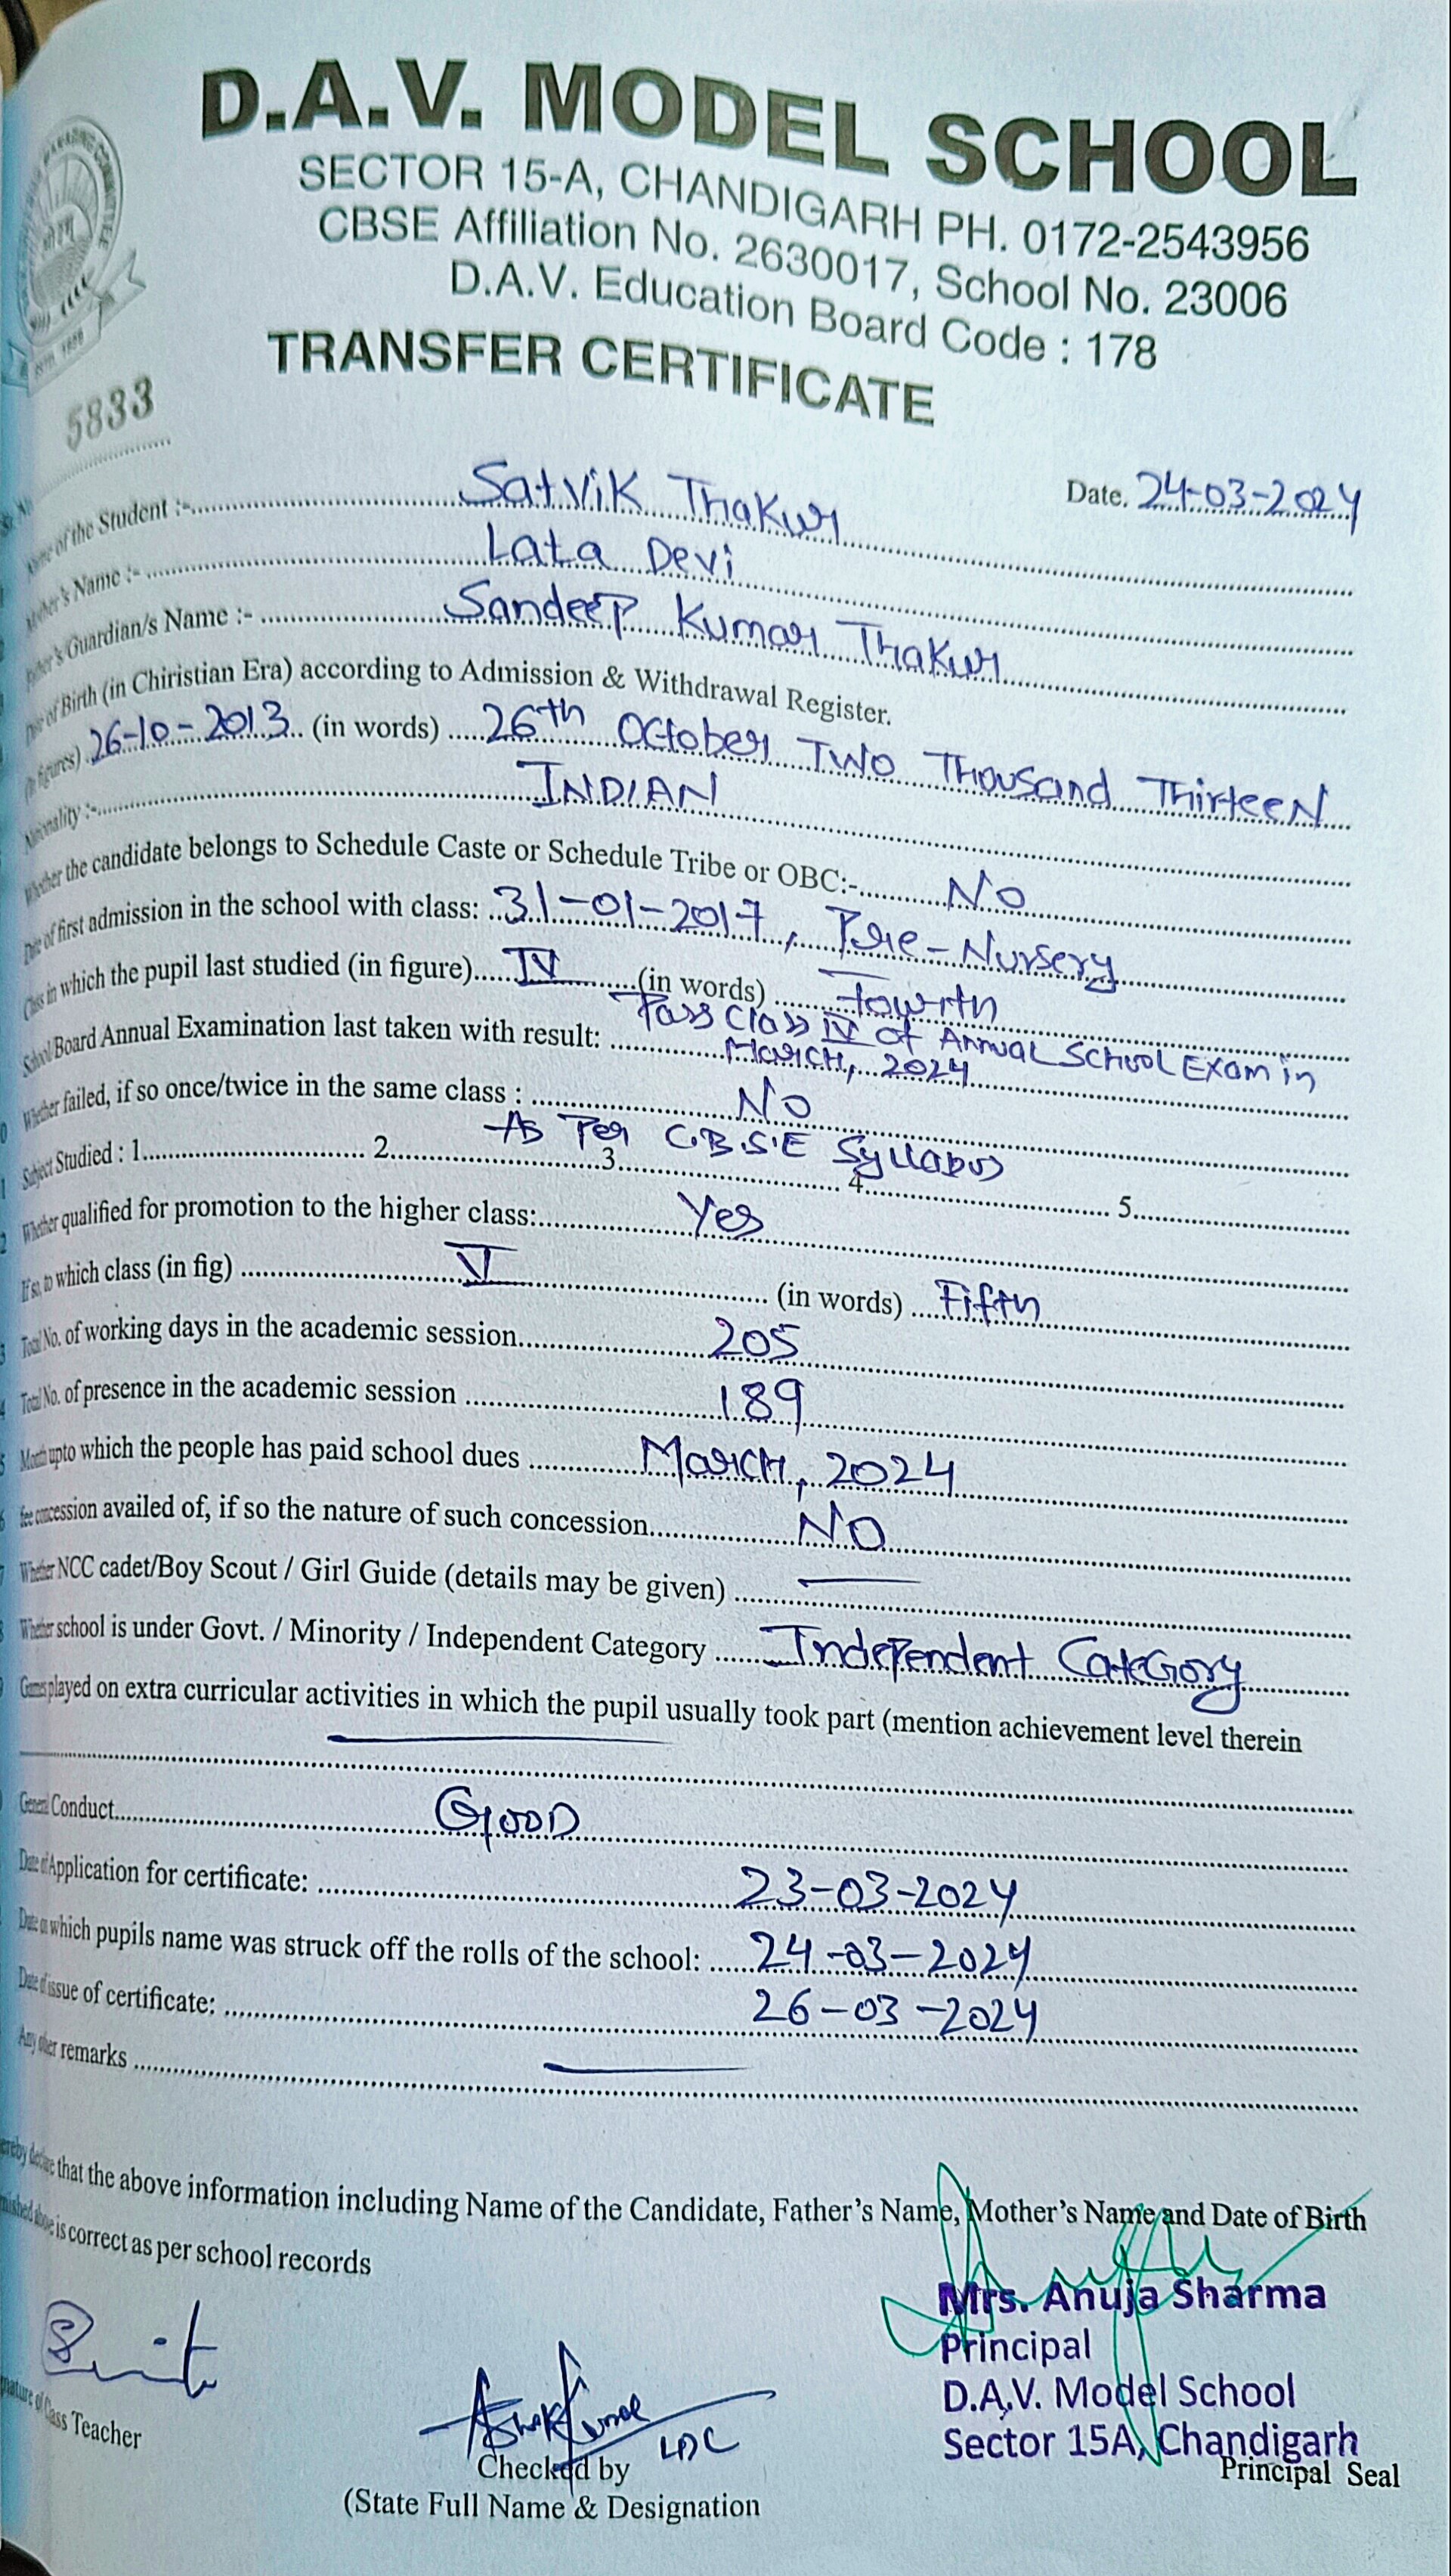 D.A.V. MODEL SCHOOL
SECTOR 15-A, CHANDIGARH PH. 0172-2543956
CBSE Affiliation No. 2630017, School No. 23006
D.A.V. Education Board Code : 178
TRANSFER CERTIFICATE
5833
Date. 24-03-2024
Name of the Student :- Satvik Thakur
Mother's Name :- Lata Devi
Father's Guardian/s Name :- Sandeep Kumar Thakur
Date of Birth (in Chiristian Era) according to Admission & Withdrawal Register.
(in figures) 26-10-2013 (in words) 26th October Two Thousand Thirteen
Nationality :- INDIAN
Whether the candidate belongs to Schedule Caste or Schedule Tribe or OBC:- No
Date of first admission in the school with class: 31-01-2017, Pre-Nursery
Class in which the pupil last studied (in figure) IV (in words) Fourth
School/Board Annual Examination last taken with result: Pass Class IV of Annual School Exam in
March, 2024
Whether failed, if so once/twice in the same class : No
As Per C.B.S.E Syllabus
Subject Studied : 1 2 3 4 5
Whether qualified for promotion to the higher class: Yes
If so, to which class (in fig) V (in words) Fifth
Total No. of working days in the academic session 205
Total No. of presence in the academic session 189
Month upto which the people has paid school dues March, 2024
fee concession availed of, if so the nature of such concession NO
Whether NCC cadet/Boy Scout / Girl Guide (details may be given)
Whether school is under Govt. / Minority / Independent Category Independent Category
Games played on extra curricular activities in which the pupil usually took part (mention achievement level therein
General Conduct Good
Date of Application for certificate: 23-03-2024
Date on which pupils name was struck off the rolls of the school: 24-03-2024
Date of issue of certificate: 26-03-2024
Any other remarks
hereby declare that the above information including Name of the Candidate, Father's Name, Mother's Name and Date of Birth
above is correct as per school records
Mrs. Anuja Sharma
Principal
D.A.V. Model School
Sector 15A, Chandigarh
Principal Seal
Class Teacher
LDC
Checked by
(State Full Name & Designation